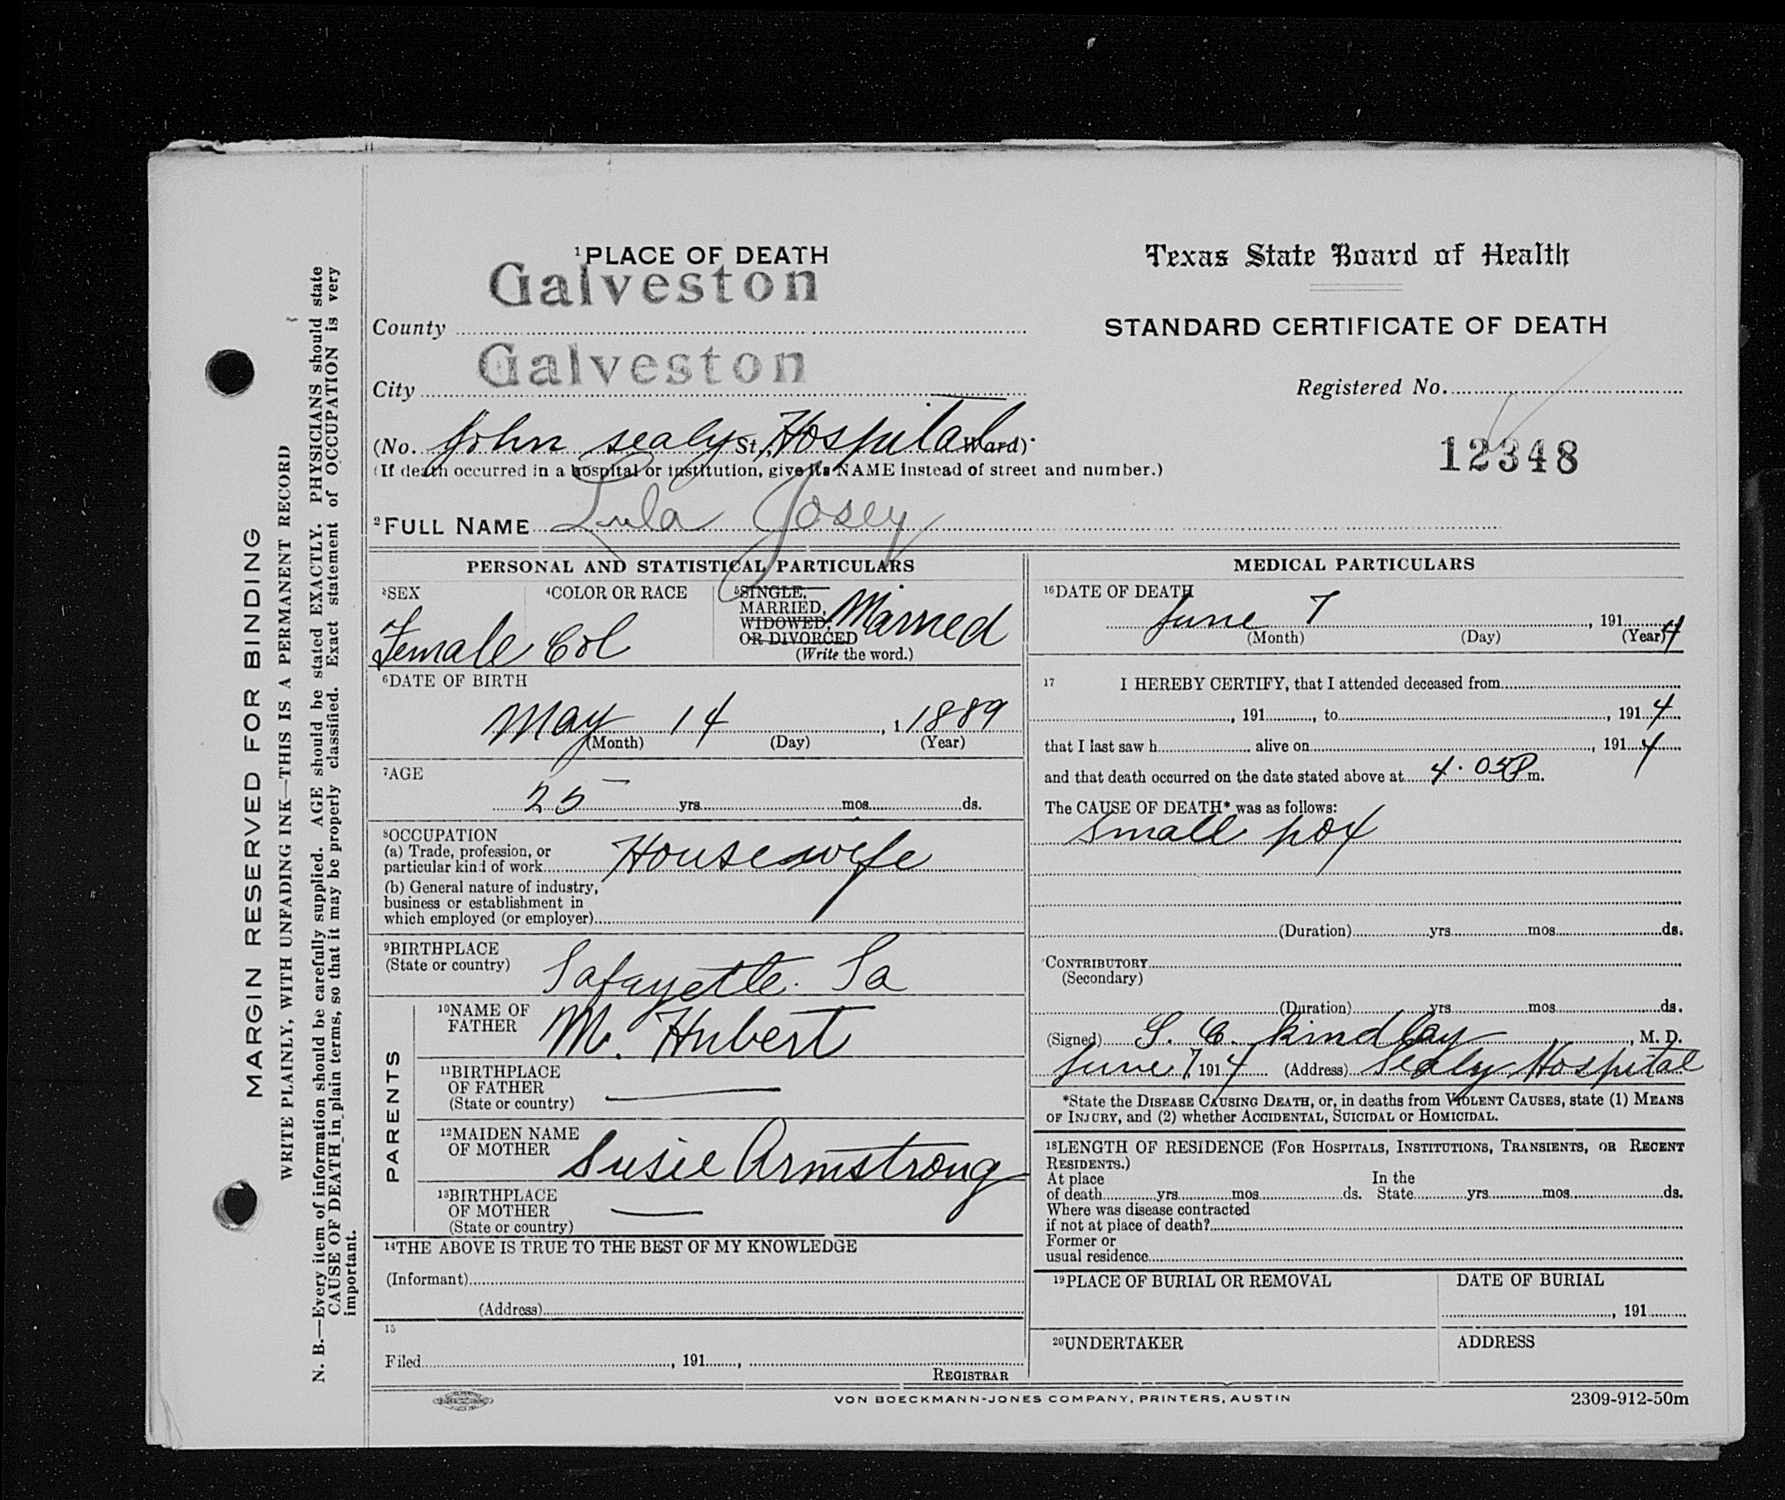 MARGIN RESERVED FOR BINDING
WRITE PLAINLY, WITH UNFADING INK—THIS IS A PERMANENT RECORD
N. B.—Every item of information should be carefully supplied. AGE should be stated EXACTLY. PHYSICIANS should state
CAUSE OF DEATH in plain terms, so that it may be properly classified. Exact statement of OCCUPATION is very
important.
1PLACE OF DEATH
Galveston
County
Galveston
City
(No. John Sealy St., Hospital Ward)
(If death occurred in a hospital or institution, give its NAME instead of street and number.)
2FULL NAME Lula Josey
Texas State Board of Health
STANDARD CERTIFICATE OF DEATH
Registered No.
12348
PERSONAL AND STATISTICAL PARTICULARS
3SEX
Female
4COLOR OR RACE
Col
5SINGLE,
MARRIED,
WIDOWED,
OR DIVORCED
(Write the word.)
Married
6DATE OF BIRTH
May 14, 1 1889
(Month) (Day) (Year)
7AGE
25 yrs. mos. ds.
8OCCUPATION
(a) Trade, profession, or
particular kind of work Housewife
(b) General nature of industry,
business or establishment in
which employed (or employer)
9BIRTHPLACE
(State or country) Lafayette. La
PARENTS
10NAME OF
FATHER M. Hubert
11BIRTHPLACE
OF FATHER
(State or country)
12MAIDEN NAME
OF MOTHER Susie Armstrong
13BIRTHPLACE
OF MOTHER
(State or country)
14THE ABOVE IS TRUE TO THE BEST OF MY KNOWLEDGE
(Informant)
(Address)
15
Filed , 191 ,
REGISTRAR
MEDICAL PARTICULARS
16DATE OF DEATH
June 7 , 191 4
(Month) (Day) (Year)
17 I HEREBY CERTIFY, that I attended deceased from
, 191 , to , 191 4
that I last saw h alive on , 191 4
and that death occurred on the date stated above at 4.05 P m.
The CAUSE OF DEATH* was as follows:
Small pox
(Duration) yrs. mos. ds.
CONTRIBUTORY
(Secondary)
(Duration) yrs. mos. ds.
(Signed) S. C. Kindlay, M. D.
June 7, 191 4 (Address) Sealy Hospital
*State the DISEASE CAUSING DEATH, or, in deaths from VIOLENT CAUSES, state (1) MEANS
OF INJURY, and (2) whether ACCIDENTAL, SUICIDAL OR HOMICIDAL.
18LENGTH OF RESIDENCE (FOR HOSPITALS, INSTITUTIONS, TRANSIENTS, OR RECENT
RESIDENTS.)
At place In the
of death yrs. mos. ds. State yrs. mos. ds.
Where was disease contracted
if not at place of death?
Former or
usual residence
19PLACE OF BURIAL OR REMOVAL
DATE OF BURIAL
, 191
20UNDERTAKER
ADDRESS
VON BOECKMANN-JONES COMPANY, PRINTERS, AUSTIN
2309-912-50m